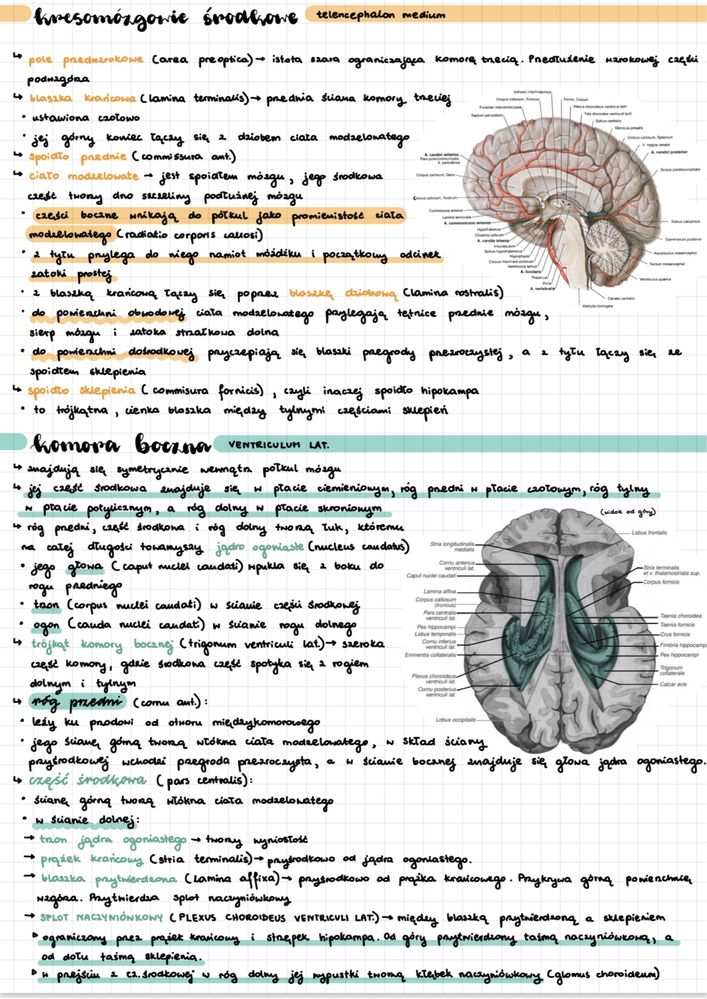 kresomózgowie środkowe telencephalon medium
↳ pole przedwzrokowe (area preoptica) → istota szara ograniczająca komorę trzecią. Przedłużenie wzrokowej części
podwzgórza
↳ blaszka krańcowa (lamina terminalis) → przednia ściana komory trzeciej
• ustawiona czołowo
• jej górny koniec łączy się z dziobem ciała modzelowatego
↳ spoidło przednie (commissura ant.)
↳ ciało modzelowate → jest spoidłem mózgu, jego środkowa
część tworzy dno szczeliny podłużnej mózgu
• części boczne wnikają do półkul jako promienistość ciała
modzelowatego (radiatio corporis callosi)
• z tyłu przylega do niego namiot móżdżku i początkowy odcinek
zatoki prostej
• z blaszką krańcową łączy się poprzez blaszkę dziobową (lamina rostralis)
• do powierzchni obwodowej ciała modzelowatego przylegają tętnice przednie mózgu,
sierp mózgu i zatoka strzałkowa dolna
• do powierzchni dośrodkowej przyczepiają się blaszki przegrody przezroczystej, a z tyłu łączy się ze
spoidłem sklepienia
↳ spoidło sklepienia (commisura fornicis), czyli inaczej spoidło hipokampa
• to trójkątna, cienka blaszka między tylnymi częściami sklepień
komora boczna VENTRICULUM LAT.
↳ znajdują się symetrycznie wewnątrz półkul mózgu
↳ jej część środkowa znajduje się w płacie ciemieniowym, róg przedni w płacie czołowym, róg tylny
w płacie potylicznym, a róg dolny w płacie skroniowym
(widok od góry)
↳ róg przedni, część środkowa i róg dolny tworzą łuk, któremu
na całej długości towarzyszy jądro ogoniaste (nucleus caudatus)
• jego głowa (caput nuclei caudati) wpukla się z boku do
rogu przedniego
• trzon (corpus nuclei caudati) w ścianie części środkowej
• ogon (cauda nuclei caudati) w ścianie rogu dolnego
↳ trójkąt komory bocznej (trigonum ventriculi lat.) → szeroka
część komory, gdzie środkowa część spotyka się z rogiem
dolnym i tylnym
↳ róg przedni (cornu ant.):
• leży ku przodowi od otworu międzykomorowego
• jego ścianę górną tworzą włókna ciała modzelowatego, w skład ściany
przyśrodkowej wchodzi przegroda przezroczysta, a w ścianie bocznej znajduje się głowa jądra ogoniastego.
↳ część środkowa (pars centralis):
• ścianę górną tworzą włókna ciała modzelowatego
• w ścianie dolnej:
→ trzon jądra ogoniastego → tworzy wyniosłość
→ prążek krańcowy (stria terminalis) → przyśrodkowo od jądra ogoniastego.
→ blaszka przytwierdzona (lamina affixa) → przyśrodkowo od prążka krańcowego. Przykrywa górną powierzchnię
wzgórza. Przytwierdza splot naczyniówkowy
→ SPLOT NACZYNIÓWKOWY (PLEXUS CHOROIDEUS VENTRICULI LAT.) → między blaszką przytwierdzoną a sklepieniem
▷ ograniczony przez prążek krańcowy i strzępek hipokampa. Od góry przytwierdzony taśmą naczyniówkową, a
od dołu taśmą sklepienia.
▷ w przejściu z cz. środkowej w róg dolny jej wypustki tworzą kłębek naczyniówkowy (glomus choroideum)
Stria longitudinalis
medialis
Cornu anterius
ventriculi lat.
Caput nuclei caudati
Lamina affixa
Corpus callosum
(truncus)
Pars centralis
ventriculi lat.
Pes hippocampi
Lobus temporalis
Cornu inferius
ventriculi lat.
Eminentia collateralis
Plexus choroideus
ventriculi lat.
Cornu posterius
ventriculi lat.
Lobus occipitalis
Lobus frontalis
Stria terminalis
et v. thalamostriata sup.
Corpus fornicis
Taenia choroidea
Taenia fornicis
Crus fornicis
Fimbria hippocampi
Pes hippocampi
Trigonum
collaterale
Calcar avis